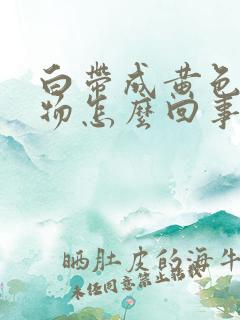 白带成黄色
物怎麼回事
晒肚皮的海牛
未经同意禁止转载